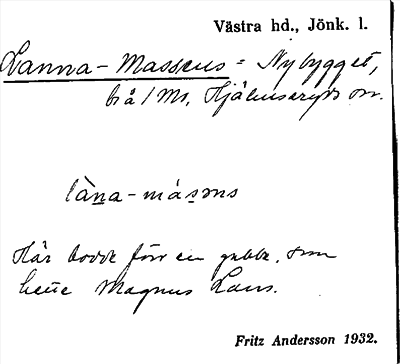 Västra hd., Jönk. l.
Lanna-Massens = Nybygget,
Hjälmseryds sn.
làna-másəns
Här bodde förr en gubbe, som
hette Magnus Lans.
Fritz Andersson 1932.